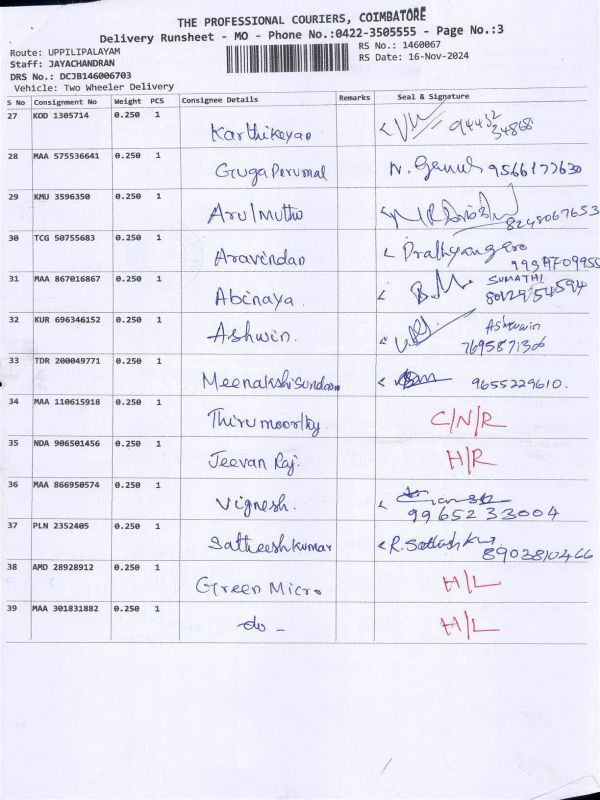 THE PROFESSIONAL COURIERS, COIMBATORE
Delivery Runsheet - MO - Phone No.:0422-3505555 - Page No.:3
Route: UPPILIPALAYAM
RS No.: 1460067
Staff: JAYACHANDRAN
RS Date: 16-Nov-2024
DRS No.: DCJB146006703
Vehicle: Two Wheeler Delivery
S No Consignment No Weight PCS Consignee Details Remarks Seal & Signature
27 KDD 1305714 0.250 1 Karthikeyan 94432 34868
28 MAA 575536641 0.250 1 GugaPerumal 9566177630
29 KMU 3596350 0.250 1 Arulmuthu 8248067653
30 TCG 50755683 0.250 1 Aravindan
31 MAA 867016867 0.250 1 Abinaya SUMATHI
32 KUR 696346152 0.250 1 Ashwin. 7695871306
33 TDR 200049771 0.250 1 MeenakshiSundaram 9655229610.
34 MAA 110615918 0.250 1 Thirumoorthy C/N/R
35 NDA 906501456 0.250 1 Jeevan Raj. H/R
36 MAA 866950574 0.250 1 Vignesh. 9965233004
37 PLN 2352405 0.250 1 Satheeshkumar R. 8903810466
38 AMD 28928912 0.250 1 Green Micro H/L
39 MAA 301831882 0.250 1 do - H/L